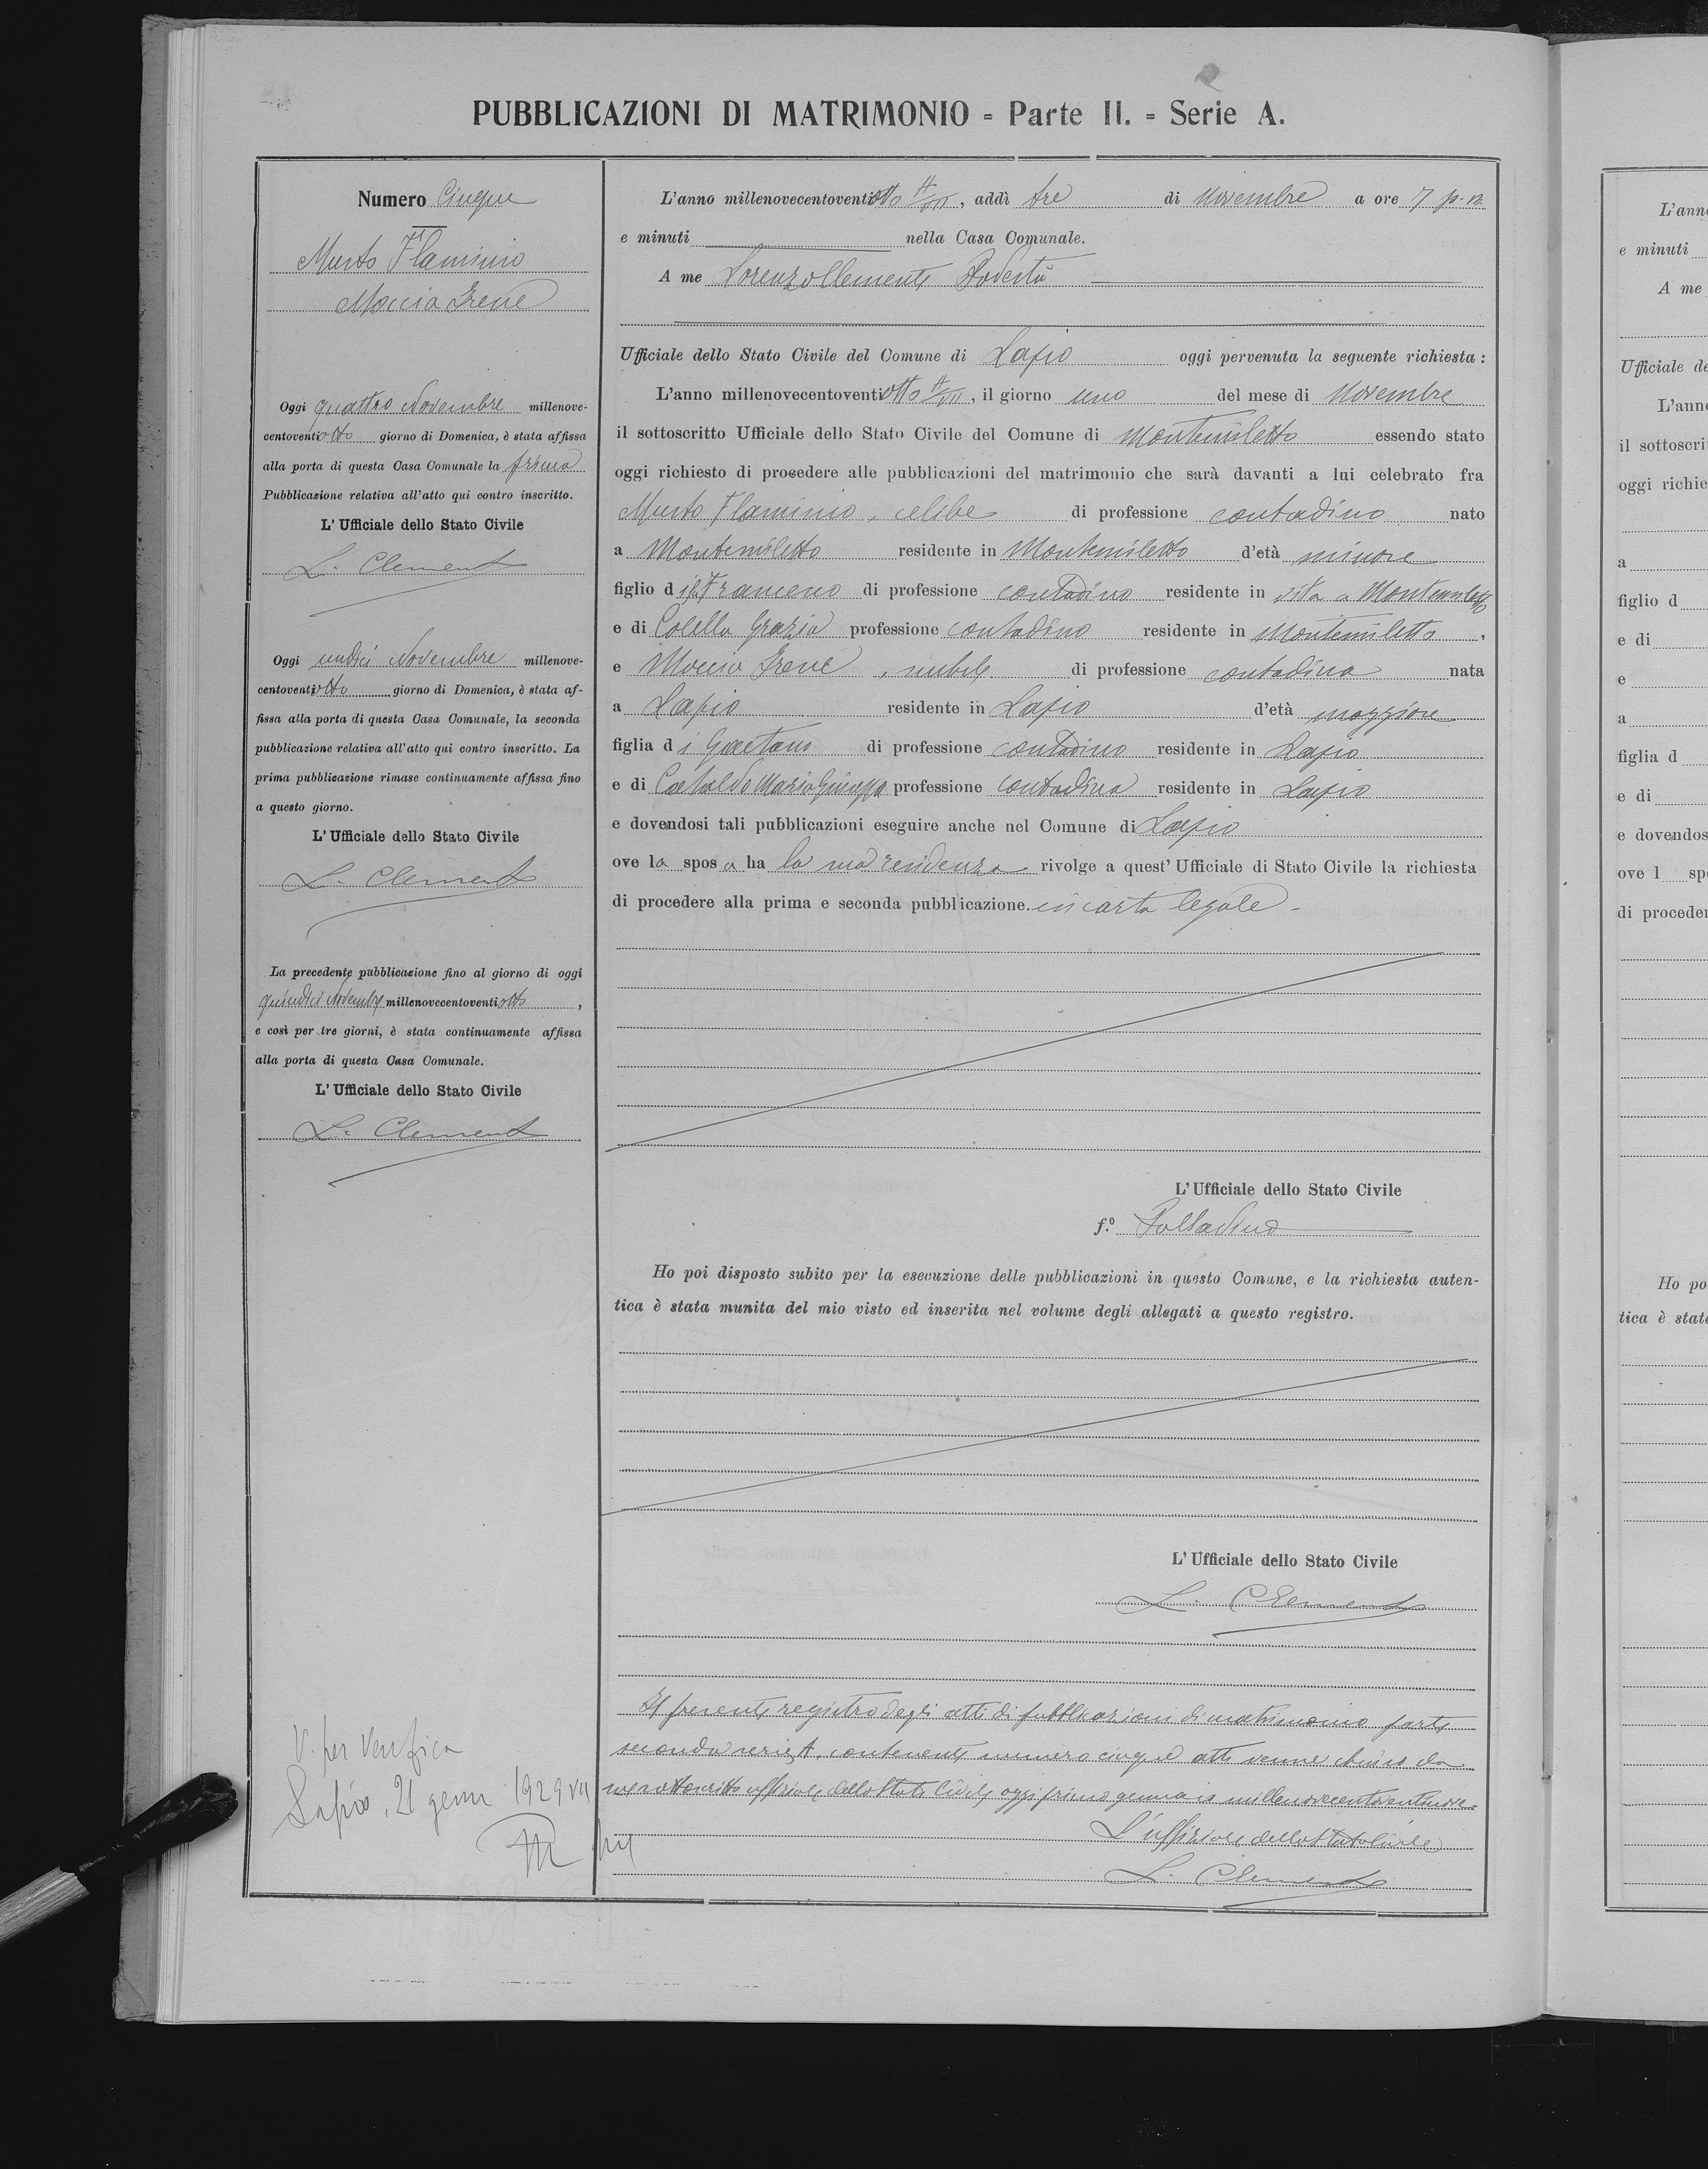 PUBBLICAZIONI DI MATRIMONIO = Parte II. = Serie A.
Numero Cinque
Musto Flaminio
Moccia Irene
Oggi quattro Novembre millenove-
centoventiotto giorno di Domenica, è stata affissa
alla porta di questa Casa Comunale la prima
Pubblicazione relativa all'atto qui contro inscritto.
L'Ufficiale dello Stato Civile
L. Clemente
Oggi undici Novembre millenove-
centoventiotto giorno di Domenica, è stata af-
fissa alla porta di questa Casa Comunale, la seconda
pubblicazione relativa all'atto qui contro inscritto. La
prima pubblicazione rimase continuamente affissa fino
a questo giorno.
L'Ufficiale dello Stato Civile
L. Clemente
La precedente pubblicazione fino al giorno di oggi
quindici Novembre millenovecentoventiotto,
e così per tre giorni, è stata continuamente affissa
alla porta di questa Casa Comunale.
L'Ufficiale dello Stato Civile
L. Clemente
V. per verifica
Lapio, 21 genn 1929 VII
L'anno millenovecentoventiotto, addì tre di Novembre a ore 7 p.m
e minuti nella Casa Comunale.
A me Lorenzo Clemente Podestà
Ufficiale dello Stato Civile del Comune di Lapio oggi pervenuta la seguente richiesta:
L'anno millenovecentoventiotto, il giorno uno del mese di Novembre
il sottoscritto Ufficiale dello Stato Civile del Comune di Montemiletto essendo stato
oggi richiesto di procedere alle pubblicazioni del matrimonio che sarà davanti a lui celebrato fra
Musto Flaminio, celibe di professione contadino nato
a Montemiletto residente in Montemiletto d'età minore
figlio di di professione contadino residente in vita a Montemiletto
e di Colella Grazia professione contadina residente in Montemiletto,
e Moccia Irene, nubile di professione contadina nata
a Lapio residente in Lapio d'età maggiore
figlia di Gaetano di professione contadino residente in Lapio
e di Cataldo Maria Giuseppa professione contadina residente in Lapio
e dovendosi tali pubblicazioni eseguire anche nel Comune di Lapio
ove la sposa ha la sua residenza rivolge a quest'Ufficiale di Stato Civile la richiesta
di procedere alla prima e seconda pubblicazione. in carta legale.
L'Ufficiale dello Stato Civile
f.º Palladino
Ho poi disposto subito per la esecuzione delle pubblicazioni in questo Comune, e la richiesta auten-
tica è stata munita del mio visto ed inserita nel volume degli allegati a questo registro.
L'Ufficiale dello Stato Civile
L. Clemente
Il presente registro degli atti di pubblicazioni di matrimonio parte
seconda serie A. contenente numero cinque atti venne chiuso da
me sottoscritto uffiziale dello Stato Civile oggi primo gennaio millenovecentoventinove.
L'uffiziale dello Stato Civile
L. Clemente
L'anno
e minuti
A me
Ufficiale de
L'anno
il sottoscri
oggi richie
a
figlio d
e di
e
a
figlia d
e di
e dovendos
ove l spo
di proceder
Ho po
tica è stat